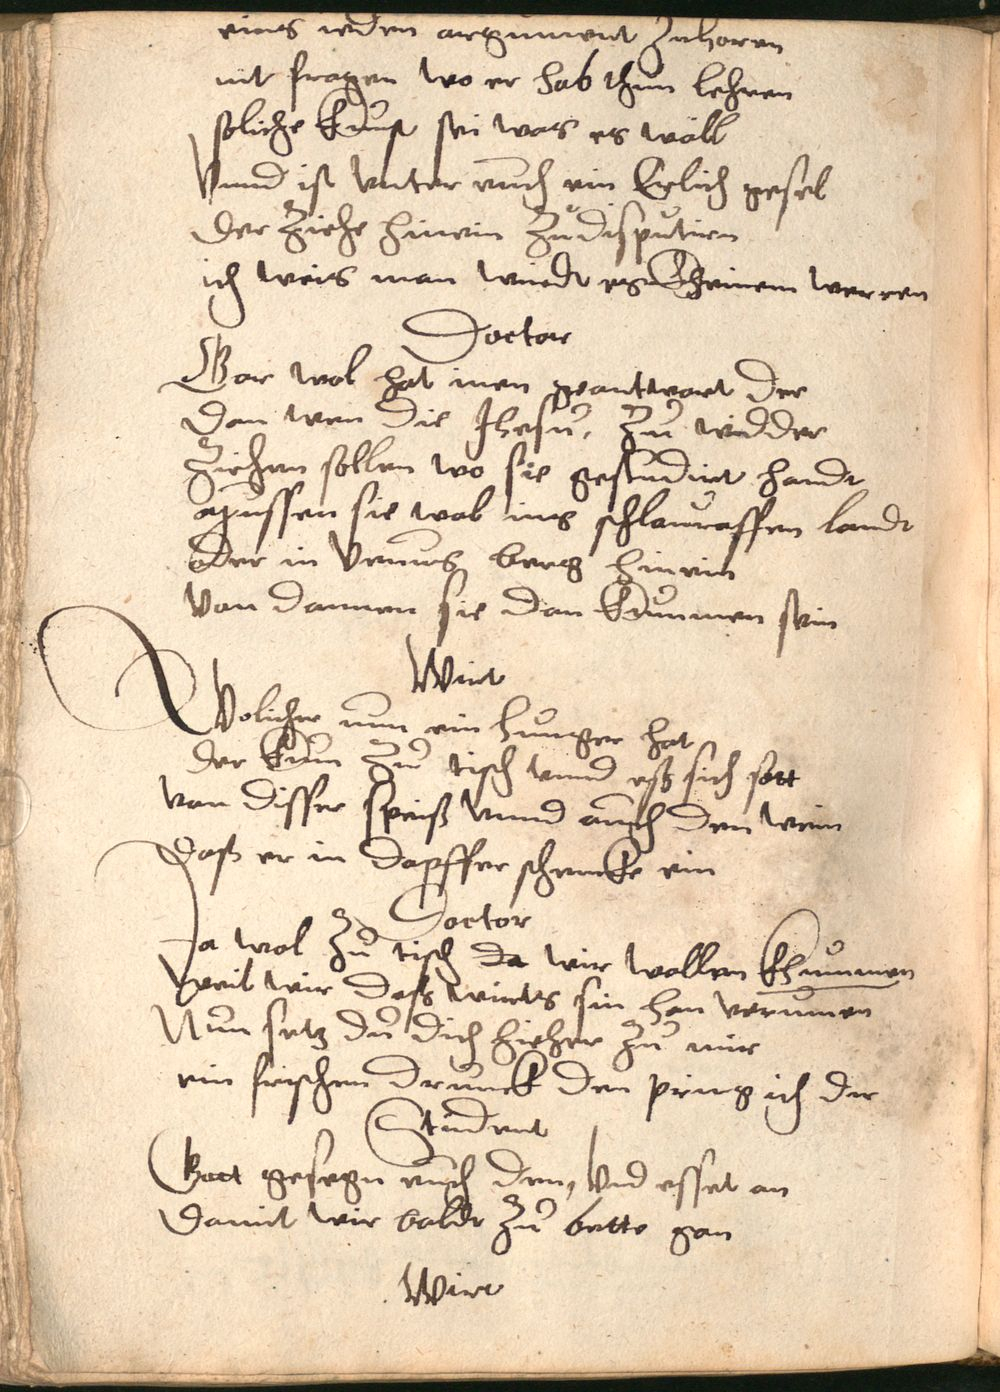 eines ieden argument Zuhoren
nit fragen wo er hab thun lehren
soliche Kunst sei was es wöll
Vnnd ist vnter euch ein Erlich gesel
der Ziehe hinein Zu disputirn
ich weis man wirdt es Kheinem werren
Doctor
Gar wol hat inen geantwort der
dan wen die Jhesu. Zu widder
Ziehen sollen wo sie gestudirt handt
müssen sie wol ins schlauraffen landt
oder in Venus berg hinein
Von dannen sie dan Kummen sein
Wirt
Wolicher nun ein hunger hat
der Kum Zu tisch vnnd eß sich satt
von disser speiß vnnd auch den wein
Daß er in dapffer schencke ein
Doctor
Ja wol Zu tisch da wir wollen Khummen
weil wir deß wirts sin han vernumen
Nun setz du dich hieher Zu mir
ein frischen drunck den pring ich dir
Student
Gott gesegn euch den, Vnd esset an
Damit wir baldt Zu bette gan
Wirt